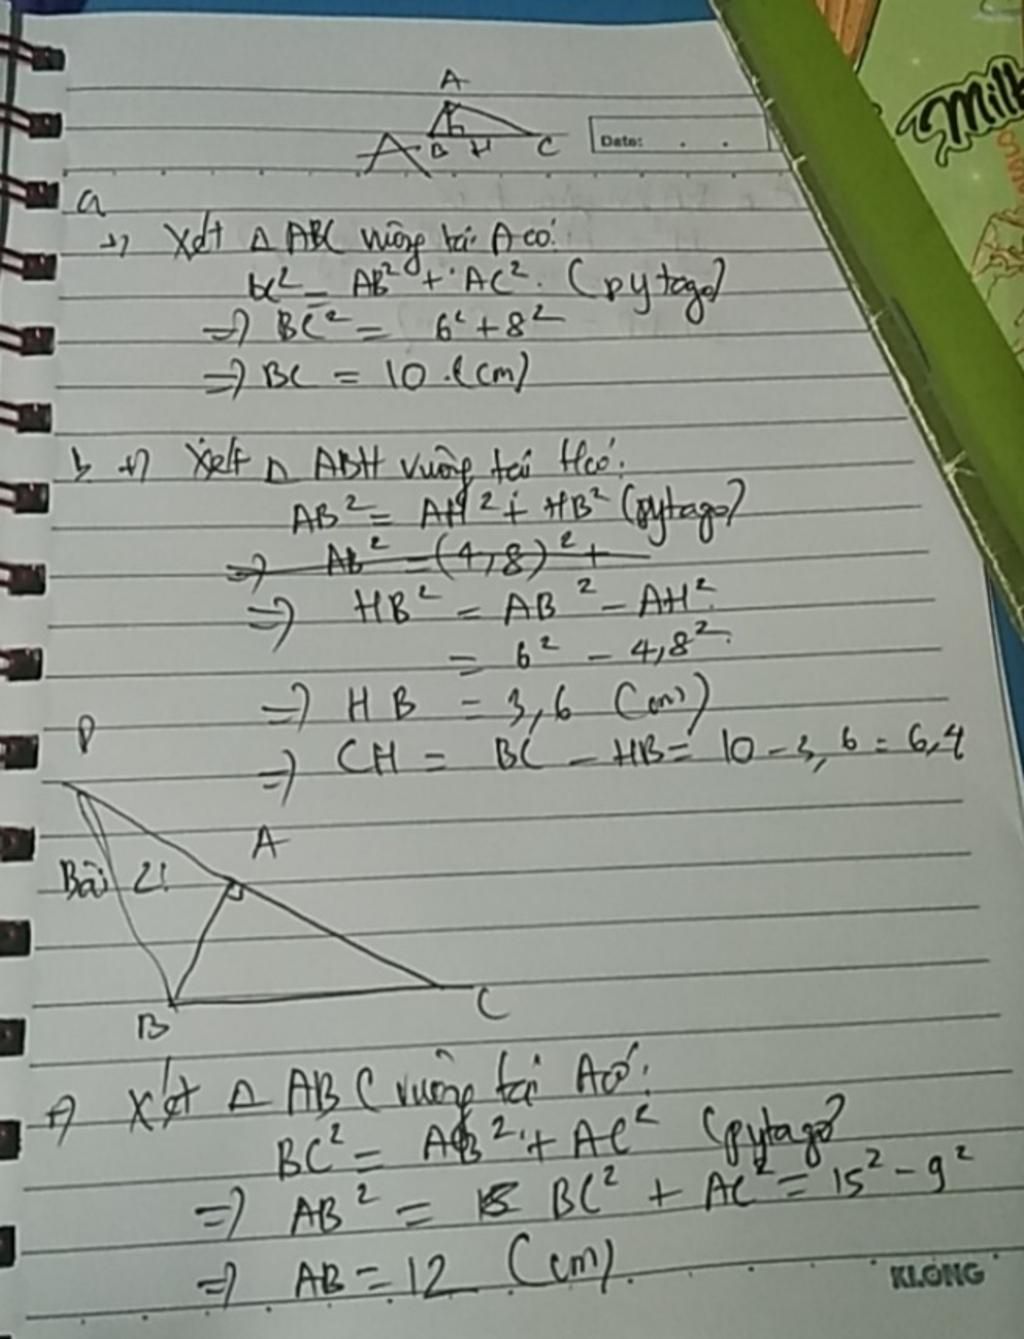 Milk
A
B H C
Date:
a
+) Xét Δ ABC vuông tại A có:
BC² = AB² + AC². (pytago)
=) BC² = 6² + 8²
=) BC = 10 (cm)
b +) Xét Δ ABH vuông tại H có:
AB² = AH² + HB² (pytago)
=) AB² = (4,8)² +
=) HB² = AB² - AH²
= 6² - 4,8²
=) HB = 3,6 (cm)
=) CH = BC - HB = 10 - 3,6 = 6,4
D
A
Bài 2:
B
C
+) Xét Δ ABC vuông tại A có:
BC² = AB² + AC² (pytago)
=) AB² = BC² + AC² = 15² - 9²
=) AB = 12 (cm)
KLONG